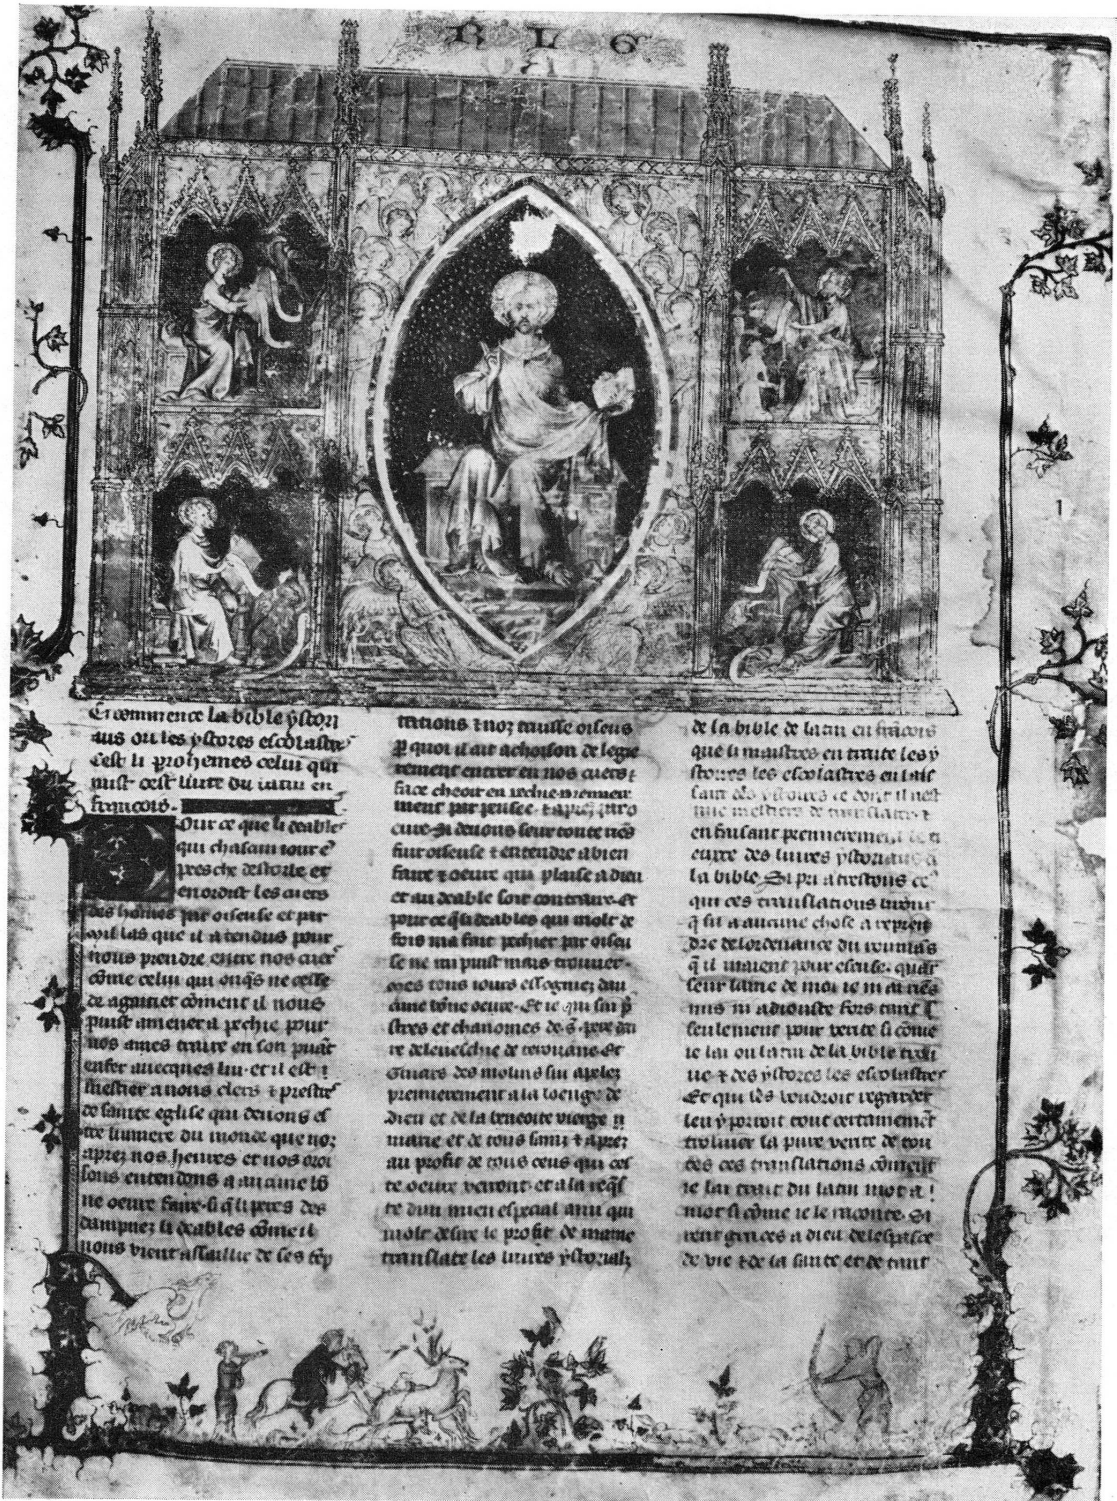 R L 6
1
Ci commence la bible ystori
aus ou les ystores escolastres
Cest li prohemes celui qui
mist cest livre du latin en
francois.
Pour ce que li deables
qui chascun iour e
pesche destorbe et
en ordist les cuers
des hōmes par oiseuse et par
mil las que il a tendus pour
nous prendre entre nos cuers
cōme celui qui onqs ne cesse
de agaitier cōment il nous
puist amener a pechie pour
nos ames traire en son puāt
enfer auecques lui. et il est
mestier a nous clers & prestres
de sainte eglise qui deuons es
tre lumiere du monde que nos
apres nos heures et nos oroi
sons entendons a aucune bō
ne oeure faire. si q li peres des
dampnez li deables cōme il
nous vient assaillir de ses tēp
tations & nos truisse oiseus
p quoi il ait achoison de legie
rement entrer en nos cuers &
face cheoir en pechie premiere
ment par pensee. & apres par o
eure. Si deuons seur toute riēs
fuir oiseuse & entendre a bien
faire & oeure qui plaise a dieu
et au deable soit contraire. Et
pour ce q li deables qui molt de
fois ma fait pechier par oiseu
se ne mi puist mais trouuer.
mes tous iours essogniez dau
cune bōne oeure. Et ie qui sui p
stres et chanoines de s. pere dai
re deleueschie de terouane. Et
Guiars des molins sui apelez
premierement a la loenge de
dieu et de la beneoite vierge
marie et de tous sains & apres
au profit de tous ceus qui ces
te oeure verront. et a la reqs
te dun mien especial ami qui
molt desire le profit de mame
translate les liures ystoriaus
de la bible de latin en francois
que li maistres en traite les y
stoires les escolastres en lais
sant des ystoires ce dont il nest
mie mestiers de translater. &
en faisant premierement le t
eure des liures ystoriaus d
la bible. Si pri a trestous ceus
qui ces translations liront
q sil i a aucune chose a repren
dre de lordenance du rounās
q il maient pour escuse. quar
seur lame de moi ie ni ai riēs
mis ni adiouste fors tant
seulement pour verite si cōme
ie lai ou latin de la bible trou
ue & des ystores les escolastres
Et qui les voudroit regarder
leu i porroit tout certainemēt
trouuer la pure verite de tou
tes ces translations cōment
ie lai trait du latin mot a
mot si cōme ie le raconte. Si
rent graces a dieu delespasce
de vie & de la sante et de tant